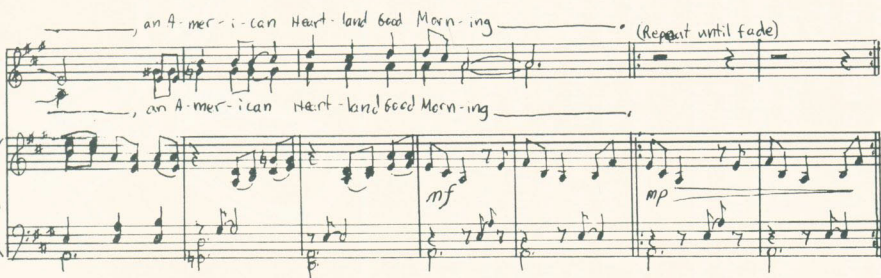 , an A-mer-i-can Heart-land Good Morn-ing .
(Repeat until fade)
, an A-mer-ican Heart-land Good Morn-ing .
mf
mp